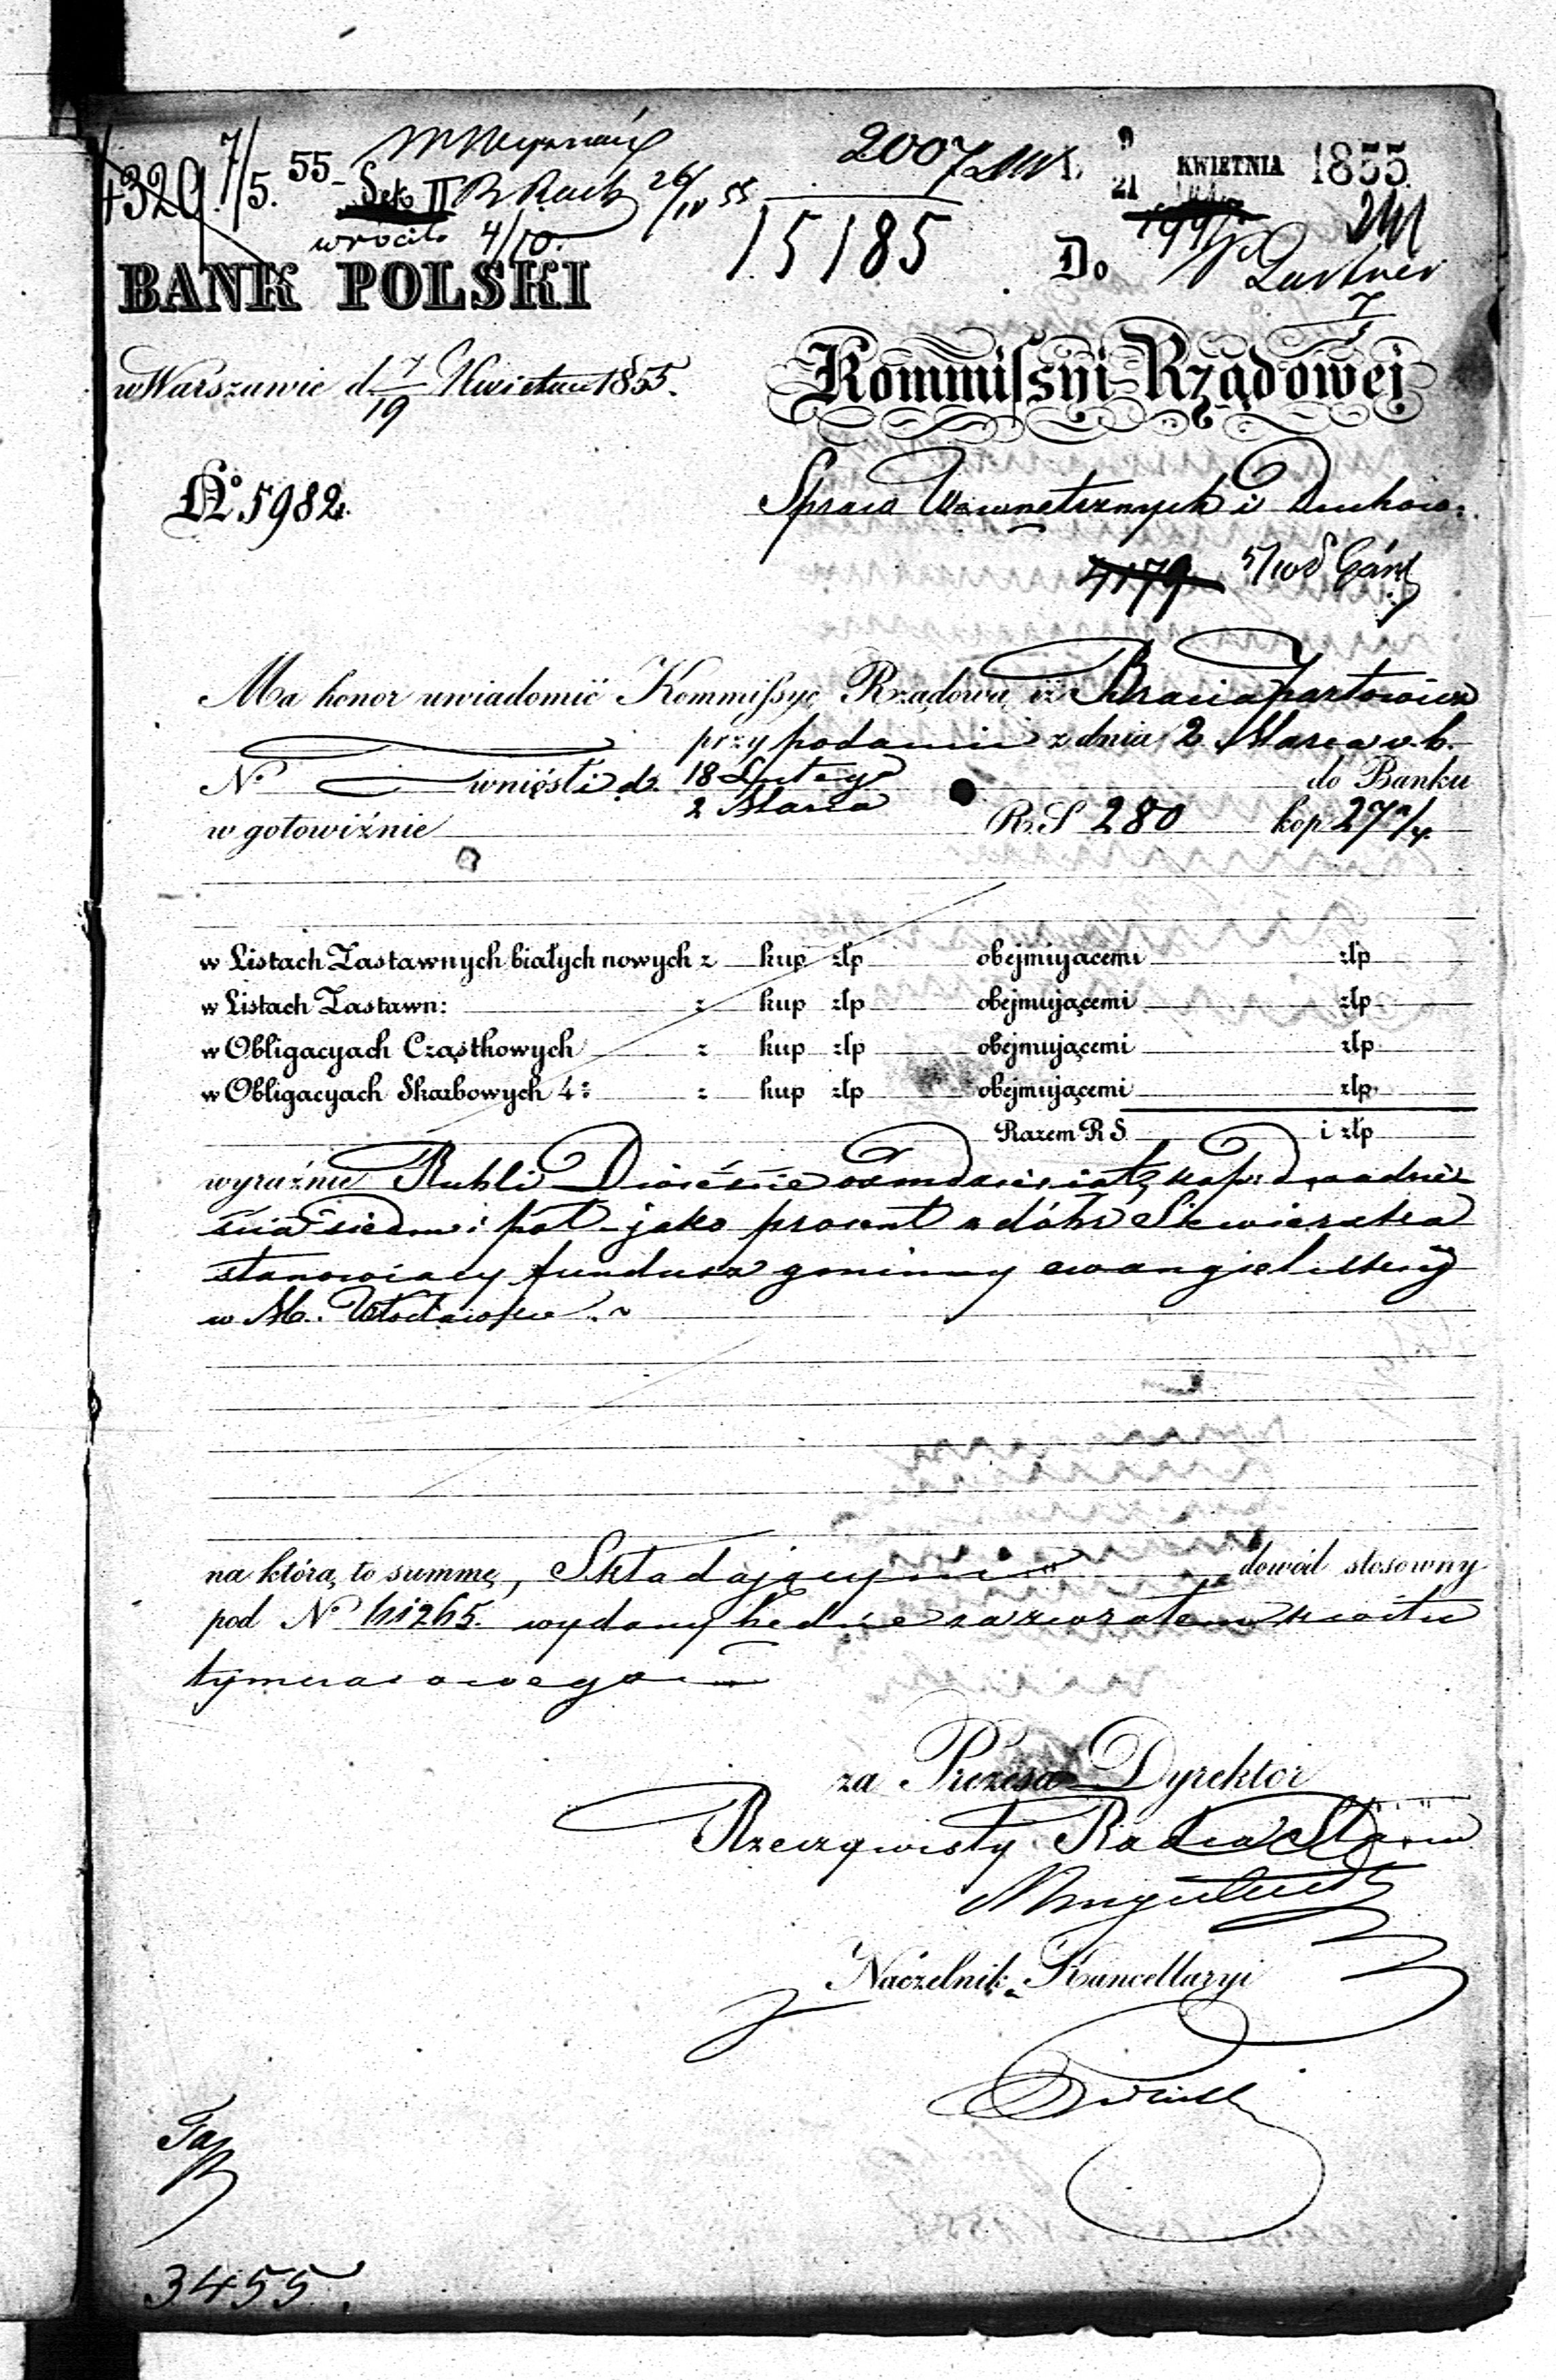 4320. 7/5. 55 2007 9/21 KWIETNIA 1855.
Sek II 26/IV 55
wrócił 4/10. 15185
BANK POLSKI Do
w Warszawie d 7/19 Kwietnia 1855. Kommissyi Rządowej
No 5982. Spraw Wewnętrznych i Duchow:
4179
Ma honor uwiadomić Kommissyę Rządową iż Bracia
przy podaniu z dnia 2 Marca r. b.
No wnieśli d. 18 Lutego do Banku
2 Marca
w gotowiźnie R. S 280 kop 27
w Listach Zastawnych białych nowych z kup złp obejmującemi złp
w Listach Zastawn: z kup złp obejmującemi złp
w Obligacyach Cząstkowych z kup złp obejmującemi złp
w Obligacyach Skarbowych 4: z kup złp obejmującemi złp
Razem R S i złp
wyraźnie Rubli Dwieście ośmdziesiąt, kop: dwadzie-
ścia siedm i pół – jako procent z dóbr
stanowiący fundusz gminny ewangielickiej
w M. Włocławku.
na którą to summę, Składającym dowód stosowny
pod No wydany będzie za zwrotem kwitu
tymczasowego
za Prezesa Dyrektor
Rzeczywisty Radca Stanu
Naczelnik Kancellaryi
3455.